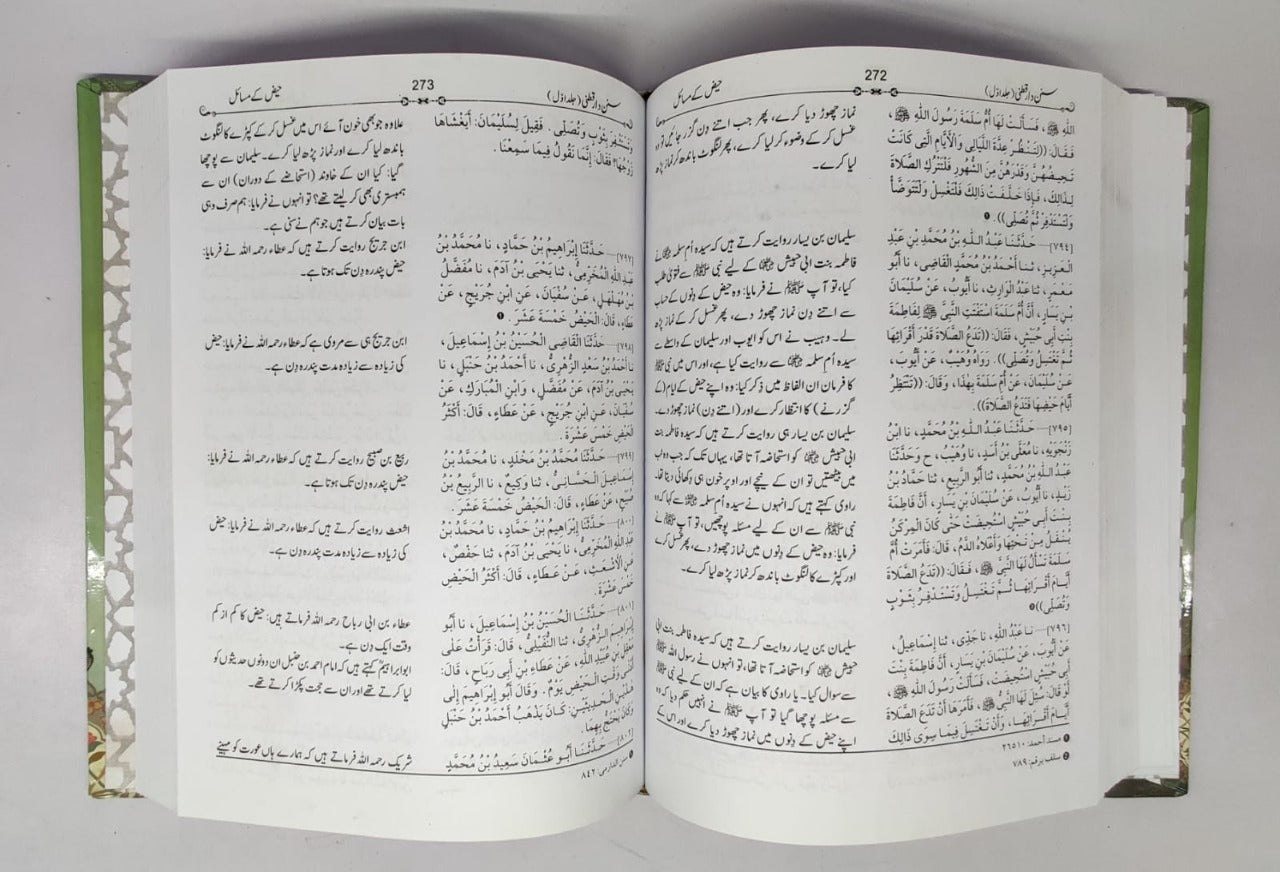 سنن دار قطنی (جلد اوّل)
272
حیض کے مسائل
اللهِ ﷺ، فَسَأَلَتْ لَهَا أُمُّ سَلَمَةَ رَسُولَ اللهِ ﷺ،
فَقَالَ: ((لِتَنْظُرْ عِدَّةَ اللَّيَالِي وَالْأَيَّامِ الَّتِي كَانَتْ
تَحِيضُهُنَّ وَقَدْرَهُنَّ مِنَ الشُّهُورِ فَلْتَتْرُكِ الصَّلَاةَ
لِذَالِكَ، فَإِذَا خَلَّفَتْ ذَالِكَ فَلْتَغْتَسِلْ وَلْتَتَوَضَّأْ
وَلْتَسْتَذْفِرْ ثُمَّ تُصَلِّي)). ❶
[٧٩٤]— حَدَّثَنَا عَبْدُ اللهِ بْنُ مُحَمَّدِ بْنِ عَبْدِ
الْعَزِيزِ، ثنا أَحْمَدُ بْنُ مُحَمَّدٍ الْقَاضِي، نا أَبُو
مَعْمَرٍ، ثنا عَبْدُ الْوَارِثِ، نا أَيُّوبُ، عَنْ سُلَيْمَانَ
بْنِ يَسَارٍ، أَنَّ أُمَّ سَلَمَةَ اسْتَفْتَتِ النَّبِيَّ ﷺ لِفَاطِمَةَ
بِنْتِ أَبِي حُبَيْشٍ، فَقَالَ: ((تَدَعُ الصَّلَاةَ قَدْرَ أَقْرَائِهَا
ثُمَّ تَغْتَسِلُ وَتُصَلِّي)). رَوَاهُ وُهَيْبٌ، عَنْ أَيُّوبَ،
عَنْ سُلَيْمَانَ، عَنْ أُمِّ سَلَمَةَ بِهَذَا، وَقَالَ: ((تَنْتَظِرُ
أَيَّامَ حَيْضِهَا فَتَدَعُ الصَّلَاةَ)).
[٧٩٥]— حَدَّثَنَا عَبْدُ اللهِ بْنُ مُحَمَّدٍ، نا ابْنُ
زَنْجُوَيْهِ، نا مُعَلَّى بْنُ أَسَدٍ، نا وُهَيْبٌ، ح وَحَدَّثَنَا
عَبْدُ اللهِ بْنُ مُحَمَّدٍ، ثنا أَبُو الرَّبِيعِ، ثنا حَمَّادُ بْنُ
زَيْدٍ، نا أَيُّوبُ، عَنْ سُلَيْمَانَ بْنِ يَسَارٍ، أَنَّ فَاطِمَةَ
بِنْتَ أَبِي حُبَيْشٍ اسْتُحِيضَتْ حَتَّى كَانَ الْمِرْكَنُ
يُنْقَلُ مِنْ تَحْتِهَا وَأَعْلَاهُ الدَّمُ، قَالَ: فَأَمَرَتْ أُمَّ
سَلَمَةَ تَسْأَلُ لَهَا النَّبِيَّ ﷺ، فَقَالَ: ((تَدَعُ الصَّلَاةَ
أَيَّامَ أَقْرَائِهَا ثُمَّ تَغْتَسِلُ وَتَسْتَذْفِرُ بِثَوْبٍ
وَتُصَلِّي)) ❷
[٧٩٦]— نا عَبْدُ اللهِ، نا جَدِّي، نا إِسْمَاعِيلُ،
عَنْ أَيُّوبَ، عَنْ سُلَيْمَانَ بْنِ يَسَارٍ، أَنَّ فَاطِمَةَ بِنْتَ
أَبِي حُبَيْشٍ اسْتُحِيضَتْ، فَسَأَلَتْ رَسُولَ اللهِ ﷺ،
أَوْ قَالَ: سُئِلَ لَهَا النَّبِيُّ ﷺ، فَأَمَرَهَا أَنْ تَدَعَ الصَّلَاةَ
أَيَّامَ أَقْرَائِهَا، وَأَنْ تَغْتَسِلَ فِيمَا سِوَى ذَالِكَ
نماز چھوڑ دیا کرے، پھر جب اتنے دِن گزر جائیں تو وہ
غسل کر کے وضوء کر لیا کرے، پھر لنگوٹ باندھ کر نماز پڑھ
لیا کرے۔
سلیمان بن یسار روایت کرتے ہیں کہ سیدہ اُم سلمہ ؓ نے
فاطمہ بنت ابی حبیش ؓ کے لیے نبی ﷺ سے فتویٰ طلب
کیا، تو آپ ﷺ نے فرمایا: وہ حیض کے دِنوں کے حساب
سے اتنے دِن نماز چھوڑ دے، پھر غسل کر کے نماز پڑھ
لے۔ وہیب نے اس کو ایوب اور سلیمان کے واسطے سے
سیدہ اُم سلمہ ؓ سے روایت کیا ہے، اور اس میں نبی ﷺ
کا فرمان ان الفاظ میں ذکر کیا: وہ اپنے حیض کے ایام (کے
گزرنے) کا انتظار کرے اور (اتنے دِن) نماز چھوڑ دے۔
سلیمان بن یسار ہی روایت کرتے ہیں کہ سیدہ فاطمہ بنت
ابی حبیش ؓ کو استحاضہ آتا تھا، یہاں تک کہ جب وہ ٹب
میں بیٹھتیں تو ان کے نیچے اور اوپر خون ہی دِکھائی دیتا تھا۔
راوی کہتے ہیں کہ انہوں نے سیدہ اُم سلمہ ؓ سے کہا کہ وہ
نبی ﷺ سے ان کے لیے مسئلہ پوچھیں، تو آپ ﷺ نے
فرمایا: وہ حیض کے دِنوں میں نماز چھوڑ دے، پھر غسل کرے
اور کپڑے کا لنگوٹ باندھ کر نماز پڑھ لیا کرے۔
سلیمان بن یسار روایت کرتے ہیں کہ سیدہ فاطمہ بنت ابی
حبیش ؓ کو استحاضہ آتا تھا، تو انہوں نے رسول اللہ ﷺ
سے سوال کیا۔ یا راوی کا بیان ہے کہ ان کے لیے نبی ﷺ
سے مسئلہ پوچھا گیا تو آپ ﷺ نے انہیں حکم دیا کہ وہ
اپنے حیض کے دِنوں میں نماز چھوڑ دیا کرے اور اس کے
❶ مسند أحمد: ٢٦٥١٠
❷ سلف برقم: ٧٨٩
سنن دار قطنی (جلد اوّل)
273
حیض کے مسائل
وَتَسْتَثْفِرَ بِثَوْبٍ وَتُصَلِّيَ. فَقِيلَ لِسُلَيْمَانَ: أَيَغْشَاهَا
زَوْجُهَا؟ فَقَالَ: إِنَّمَا نَقُولُ فِيمَا سَمِعْنَا.
[٧٩٧]— حَدَّثَنَا إِبْرَاهِيمُ بْنُ حَمَّادٍ، نا مُحَمَّدُ بْنُ
عَبْدِ اللهِ الْمُخَرِّمِيُّ، ثنا يَحْيَى بْنُ آدَمَ، نا مُفَضَّلُ
بْنُ مُهَلْهَلٍ، عَنْ سُفْيَانَ، عَنِ ابْنِ جُرَيْجٍ، عَنْ
عَطَاءٍ، قَالَ: الْحَيْضُ خَمْسَةَ عَشَرَ. ❶
[٧٩٨]— حَدَّثَنَا الْقَاضِي الْحُسَيْنُ بْنُ إِسْمَاعِيلَ،
نا أَحْمَدُ بْنُ سَعْدٍ الزُّهْرِيُّ، نا أَحْمَدُ بْنُ حَنْبَلٍ، نا
يَحْيَى بْنُ آدَمَ، عَنْ مُفَضَّلٍ، وَابْنِ الْمُبَارَكِ، عَنْ
سُفْيَانَ، عَنِ ابْنِ جُرَيْجٍ، عَنْ عَطَاءٍ، قَالَ: أَكْثَرُ
الْحَيْضِ خَمْسَ عَشْرَةَ.
[٧٩٩]— حَدَّثَنَا مُحَمَّدُ بْنُ مَخْلَدٍ، نا مُحَمَّدُ بْنُ
إِسْمَاعِيلَ الْحَسَّانِيُّ، ثنا وَكِيعٌ، نا الرَّبِيعُ بْنُ
صُبَيْحٍ، عَنْ عَطَاءٍ، قَالَ: الْحَيْضُ خَمْسَةَ عَشَرَ.
[٨٠٠]— حَدَّثَنَا إِبْرَاهِيمُ بْنُ حَمَّادٍ، نا مُحَمَّدُ بْنُ
عَبْدِ اللهِ الْمُخَرِّمِيُّ، نا يَحْيَى بْنُ آدَمَ، ثنا حَفْصٌ،
عَنِ الْأَشْعَثِ، عَنْ عَطَاءٍ، قَالَ: أَكْثَرُ الْحَيْضِ
خَمْسَ عَشْرَةَ.
[٨٠١]— حَدَّثَنَا الْحُسَيْنُ بْنُ إِسْمَاعِيلَ، نا أَبُو
إِبْرَاهِيمَ الزُّهْرِيُّ، ثنا النُّفَيْلِيُّ، قَالَ: قَرَأْتُ عَلَى
مَعْقِلِ بْنِ عُبَيْدِ اللهِ، عَنْ عَطَاءِ بْنِ أَبِي رَبَاحٍ، قَالَ:
أَدْنَى وَقْتِ الْحَيْضِ يَوْمٌ. وَقَالَ أَبُو إِبْرَاهِيمَ إِلَى
هَذَيْنِ الْحَدِيثَيْنِ: كَانَ يَذْهَبُ أَحْمَدُ بْنُ حَنْبَلٍ
وَكَانَ يَحْتَجُّ بِهِمَا.
[٨٠٢]— حَدَّثَنَا أَبُو عُثْمَانَ سَعِيدُ بْنُ مُحَمَّدٍ
علاوہ جو بھی خون آئے اس میں غسل کر کے کپڑے کا لنگوٹ
باندھ لیا کرے اور نماز پڑھ لیا کرے۔ سلیمان سے پوچھا
گیا: کیا ان کے خاوند (استحاضے کے دوران) ان سے
ہمبستری بھی کر لیتے تھے؟ تو انہوں نے فرمایا: ہم صرف وہی
بات بیان کرتے ہیں جو ہم نے سنی ہے۔
ابن جریج روایت کرتے ہیں کہ عطاء رحمہ اللہ نے فرمایا:
حیض پندرہ دِن تک ہوتا ہے۔
ابن جریج ہی سے مروی ہے کہ عطاء رحمہ اللہ نے فرمایا: حیض
کی زیادہ سے زیادہ مدت پندرہ دِن ہے۔
ربیع بن صبیح روایت کرتے ہیں کہ عطاء رحمہ اللہ نے فرمایا:
حیض پندرہ دِن تک ہوتا ہے۔
اشعث روایت کرتے ہیں کہ عطاء رحمہ اللہ نے فرمایا: حیض
کی زیادہ سے زیادہ مدت پندرہ دِن ہے۔
عطاء بن ابی رباح رحمہ اللہ فرماتے ہیں: حیض کا کم از کم
وقت ایک دِن ہے۔
ابوابراہیم کہتے ہیں کہ امام احمد بن حنبل ان دونوں حدیثوں کو
لیا کرتے تھے اور ان سے حجت پکڑا کرتے تھے۔
شریک رحمہ اللہ فرماتے ہیں کہ ہمارے ہاں عورت کو مہینے
❶ سنن الدارمی: ٨٤٢